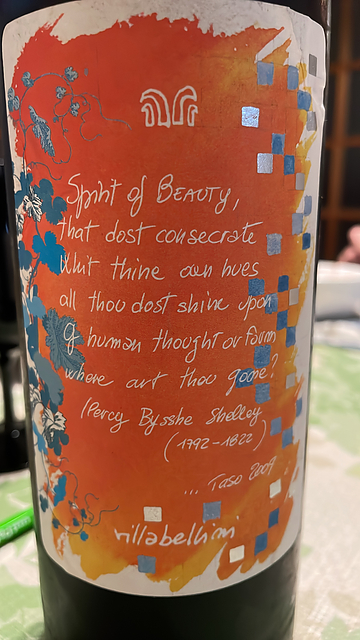 Spirit of BEAUTY,
that dost consecrate
Whit thine own hues
all thou dost shine upon
of human thought or form
where art thou gone?
(Percy Bysshe Shelley
(1792-1822)
... Taso 2007
villabellini